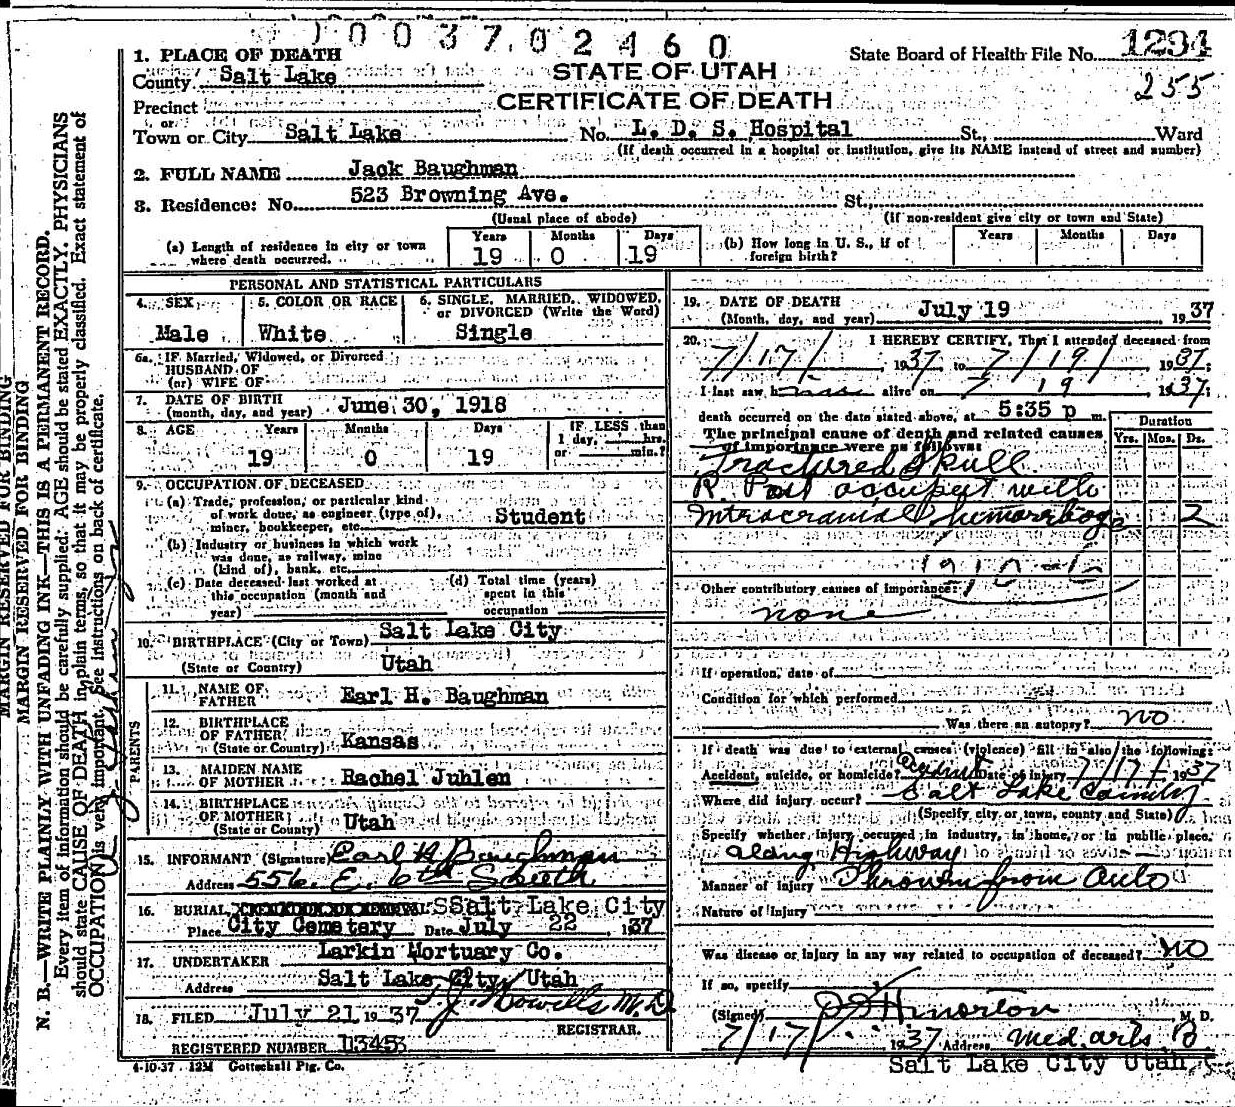 1003702460
1. PLACE OF DEATH
State Board of Health File No. 1294
255
County Salt Lake
STATE OF UTAH
Precinct
CERTIFICATE OF DEATH
or
Town or City Salt Lake No. L. D. S. Hospital St., Ward
(If death occurred in a hospital or institution, give its NAME instead of street and number)
2. FULL NAME Jack Baughman
3. Residence: No. 523 Browning Ave. St.,
(Usual place of abode) (If non-resident give city or town and State)
(a) Length of residence in city or town where death occurred. Years 19 Months 0 Days 19
(b) How long in U. S., if of foreign birth? Years Months Days
PERSONAL AND STATISTICAL PARTICULARS
4. SEX 5. COLOR OR RACE 6. SINGLE, MARRIED, WIDOWED, or DIVORCED (Write the Word)
Male White Single
6a. IF Married, Widowed, or Divorced
HUSBAND OF
(or) WIFE OF
7. DATE OF BIRTH
(month, day, and year) June 30, 1918
8. AGE Years Months Days IF LESS than
1 day, hrs.
or min.?
19 0 19
9. OCCUPATION OF DECEASED
(a) Trade, profession, or particular kind
of work done, as engineer (type of),
miner, bookkeeper, etc. Student
(b) Industry or business in which work
was done, as railway, mine
(kind of), bank, etc.
(c) Date deceased last worked at
this occupation (month and
year)
(d) Total time (years)
spent in this
occupation
10. BIRTHPLACE (City or Town) Salt Lake City
(State or Country) Utah
PARENTS
11. NAME OF
FATHER Earl H. Baughman
12. BIRTHPLACE
OF FATHER
(State or Country) Kansas
13. MAIDEN NAME
OF MOTHER Rachel Juhlen
14. BIRTHPLACE
OF MOTHER
(State or Country) Utah
15. INFORMANT (Signature) Earl H Baughman
Address 556. E. 6th South
16. BURIAL Salt Lake City
Place City Cemetery Date July 22, 1937
17. UNDERTAKER Larkin Mortuary Co.
Address Salt Lake City, Utah
18. FILED July 21 1937 T. J. Howells M.D
REGISTRAR.
REGISTERED NUMBER 13453
4-10-37 12M Gottschall Ptg. Co.
19. DATE OF DEATH
(Month, day, and year) July 19 1937
20. I HEREBY CERTIFY, That I attended deceased from
7/17/ 1937 to 7/19/ 1937;
I last saw him alive on 7 19 1937;
death occurred on the date stated above, at 5:35 p m.
The principal cause of death and related causes
of importance were as follows:
Duration
Yrs. Mos. Ds.
Fractured Skull
R. Post occuput with
Intracranial hemorrhage 2
Other contributory causes of importance:
none
If operation, date of
Condition for which performed
Was there an autopsy? no
If death was due to external causes (violence) fill in also the following:
Accident, suicide, or homicide? Accident Date of injury 7/17/ 1937
Where did injury occur? Salt Lake County
(Specify city or town, county and State)
Specify whether injury occurred in industry, in home, or in public place.
along Highway
Manner of injury Thrown from Auto
Nature of Injury
Was disease or injury in any way related to occupation of deceased? NO
If so, specify
(Signed) M. D.
7/17/ 1937 Address Med. arts B
Salt Lake City Utah
MARGIN RESERVED FOR BINDING
MARGIN RESERVED FOR BINDING
N. B.—WRITE PLAINLY WITH UNFADING INK—THIS IS A PERMANENT RECORD.
Every item of information should be carefully supplied: AGE should be stated EXACTLY. PHYSICIANS
should state CAUSE OF DEATH in plain terms, so that it may be properly classified. Exact statement of
OCCUPATION is very important. See instructions on back of certificate.